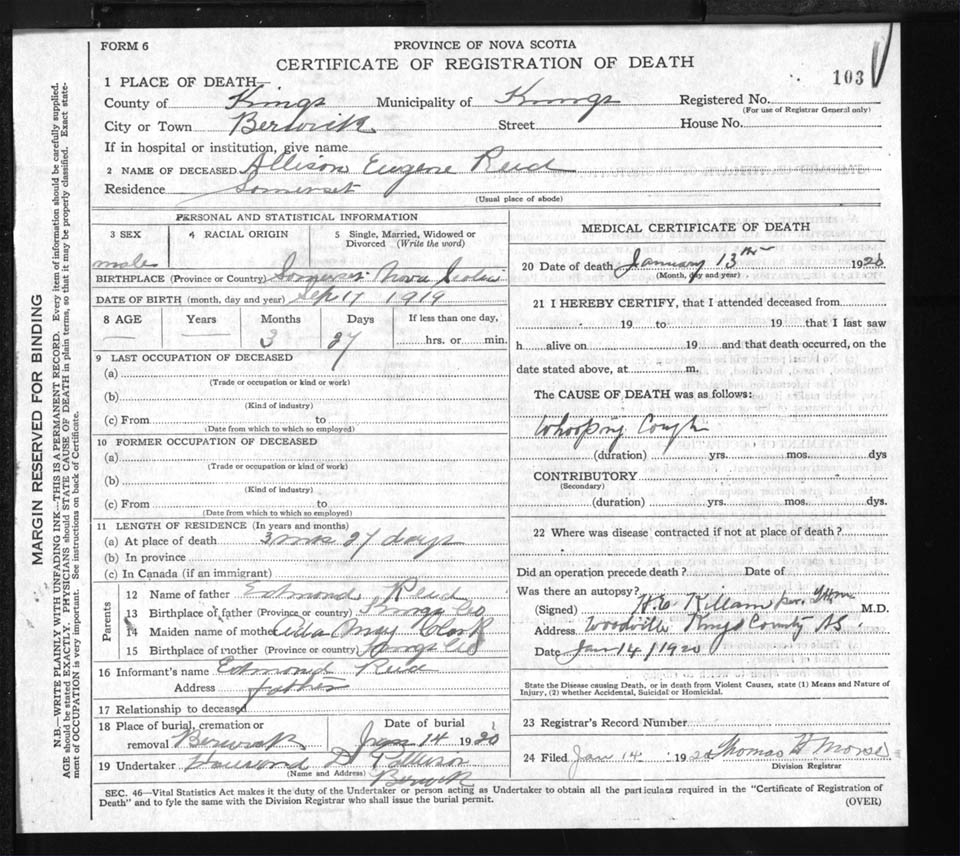 FORM 6
PROVINCE OF NOVA SCOTIA
CERTIFICATE OF REGISTRATION OF DEATH
103
1 PLACE OF DEATH—
County of Kings Municipality of Kings Registered No.
(For use of Registrar General only)
City or Town Berwick Street House No.
If in hospital or institution, give name
2 NAME OF DECEASED Allison Eugene Reid
Residence Somerset
(Usual place of abode)
PERSONAL AND STATISTICAL INFORMATION
3 SEX
4 RACIAL ORIGIN
5 Single, Married, Widowed or Divorced (Write the word)
male
BIRTHPLACE (Province or Country) Somerset Nova Scotia
DATE OF BIRTH (month, day and year) Sep 17 1919
8 AGE Years Months Days If less than one day,
3 27 hrs. or min.
9 LAST OCCUPATION OF DECEASED
(a)
(Trade or occupation or kind or work)
(b)
(Kind of industry)
(c) From to
(Date from which to which so employed)
10 FORMER OCCUPATION OF DECEASED
(a)
(Trade or occupation or kind of work)
(b)
(Kind of industry)
(c) From to
(Date from which to which so employed)
11 LENGTH OF RESIDENCE (In years and months)
(a) At place of death 3 mos 27 days
(b) In province
(c) In Canada (if an immigrant)
Parents
12 Name of father Edmond Reid
13 Birthplace of father (Province or country) Kings Co
14 Maiden name of mother May Clark
15 Birthplace of mother (Province or country) Kings Co
16 Informant's name Edmond Reid
Address
17 Relationship to deceased father
18 Place of burial, cremation or removal Berwick
Date of burial Jan 14 1920
19 Undertaker
(Name and Address) Berwick
MEDICAL CERTIFICATE OF DEATH
20 Date of death January 13th 1920
(Month, day and year)
21 I HEREBY CERTIFY, that I attended deceased from
19 to 19 that I last saw
h alive on 19 and that death occurred, on the
date stated above, at m.
The CAUSE OF DEATH was as follows:
Whooping Cough
(duration) yrs. mos. dys
CONTRIBUTORY
(Secondary)
(duration) yrs. mos. dys.
22 Where was disease contracted if not at place of death?
Did an operation precede death? Date of
Was there an autopsy?
(Signed) Killam per M.D.
Address Woodville Kings County N.S.
Date Jan 14 1920
State the Disease causing Death, or in death from Violent Causes, state (1) Means and Nature of
Injury, (2) whether Accidental, Suicidal or Homicidal.
23 Registrar's Record Number
24 Filed Jan 14 1920 Thomas H Morse
Division Registrar
SEC. 46—Vital Statistics Act makes it the duty of the Undertaker or person acting as Undertaker to obtain all the particulars required in the "Certificate of Registration of
Death" and to fyle the same with the Division Registrar who shall issue the burial permit. (OVER)
MARGIN RESERVED FOR BINDING
N.B.—WRITE PLAINLY WITH UNFADING INK—THIS IS A PERMANENT RECORD. Every item of information should be carefully supplied.
AGE should be stated EXACTLY. PHYSICIANS should STATE CAUSE OF DEATH in plain terms, so that it may be properly classified. Exact state-
ment of OCCUPATION is very important. See instructions on back of Certificate.